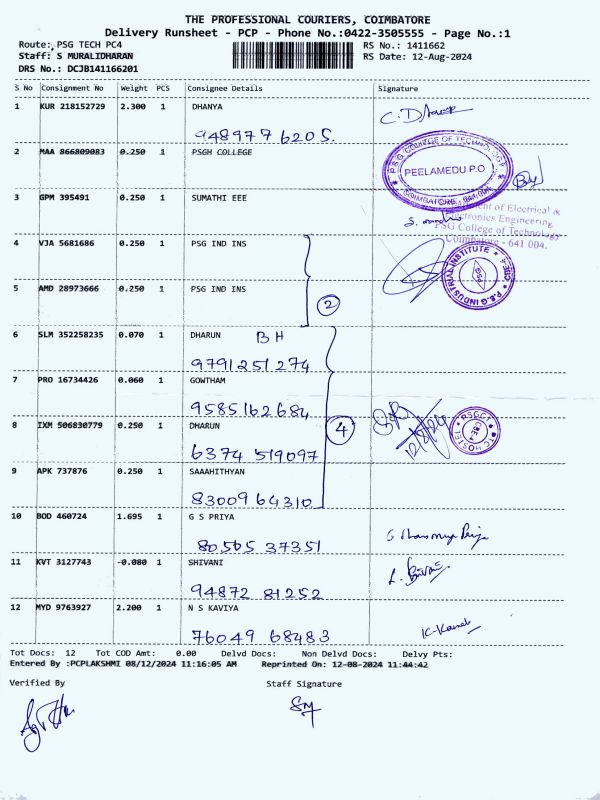 THE PROFESSIONAL COURIERS, COIMBATORE
Delivery Runsheet - PCP - Phone No.:0422-3505555 - Page No.:1
Route: PSG TECH PC4 RS No.: 1411662
Staff: S MURALIDHARAN RS Date: 12-Aug-2024
DRS No.: DCJB141166201
S No Consignment No Weight PCS Consignee Details Signature
1 KUR 218152729 2.300 1 DHANYA
94897 76205.
2 MAA 866809083 0.250 1 PSGH COLLEGE
PSG COLLEGE OF TECHNOLOGY
PEELAMEDU P.O
COIMBATORE - 641 004
3 GPM 395491 0.250 1 SUMATHI EEE
Department of Electrical &
Electronics Engineering
PSG College of Technology
Coimbatore - 641 004.
4 VJA 5681686 0.250 1 PSG IND INS
P.S.G INDUSTRIAL INSTITUTE
PSG
5 AMD 28973666 0.250 1 PSG IND INS
2
6 SLM 352258235 0.070 1 DHARUN BH
9791251274
7 PRO 16734426 0.060 1 GOWTHAM
9585162684
8 IXM 506830779 0.250 1 DHARUN
4
12/8/24
HOSTEL
6374 519097
9 APK 737876 0.250 1 SAAAHITHYAN
83009 64310
10 BOD 460724 1.695 1 G S PRIYA
80505 37351
11 KVT 3127743 -0.080 1 SHIVANI
94872 81252
12 MYD 9763927 2.200 1 N S KAVIYA
76049 68483
Tot Docs: 12 Tot COD Amt: 0.00 Delvd Docs: Non Delvd Docs: Delvy Pts:
Entered By :PCPLAKSHMI 08/12/2024 11:16:05 AM Reprinted On: 12-08-2024 11:44:42
Verified By Staff Signature